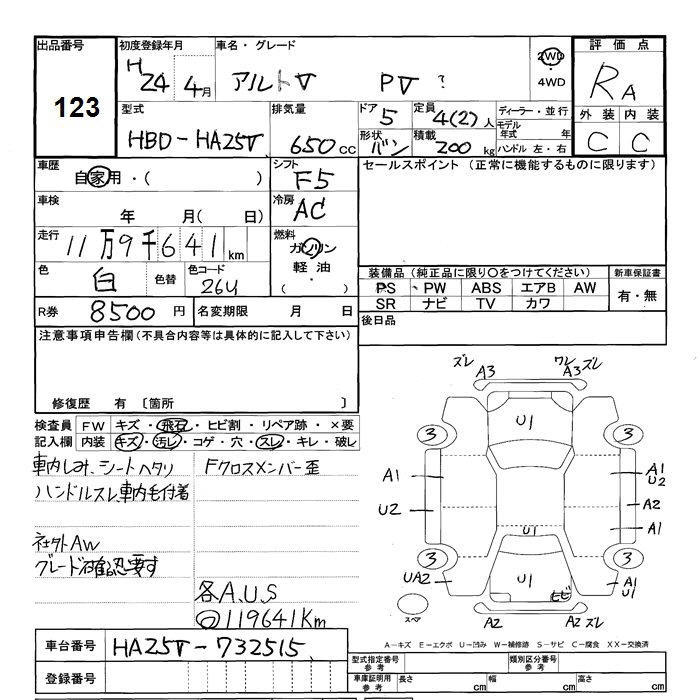 出品番号 初度登録年月 車名・グレード 2WD 評価点
123 H24 4月 アルトV PV ? 4WD RA
型式 排気量 ドア 定員 ディーラー・並行 外装 内装
HBD-HA25V 650cc 5 4(2)人 モデル年式 年 C C
形状 バン 積載 200kg ハンドル 左・右
車歴 自家用・( ) シフト F5 セールスポイント (正常に機能するものに限ります)
車検 年 月( 日) 冷房 AC
走行 11万9千641km 燃料 ガソリン
軽油
( ・ )
色 白 色替 色コード 26U
装備品 (純正品に限り○をつけてください) 新車保証書
PS PW ABS エアB AW 有・無
SR ナビ TV カワ
R券 8500円 名変期限 月 日 後日品
注意事項申告欄(不具合内容等は具体的に記入して下さい)
修復歴 有 〔箇所 〕
検査員 FW キズ・飛石・ヒビ割・リペア跡・×要
記入欄 内装 キズ・汚レ・コゲ・穴・スレ・キレ・破レ
車内しみ、シートヘタリ Fクロスメンバー歪
ハンドルスレ車内毛付着
社外AW
グレード確認要す
各A.U.S
119641Km
ズレ A3 ワレ A3ズレ
U1
3 3
A1 A1 U2
U2 A2
A1
U1
3 3
UA2 U1 ヒビ A1 U1
スペア A2 A2 ズレ
A-キズ E-エクボ U-凹み W-補修跡 S-サビ C-腐食 XX-交換済
車台番号 HA25V-732515
登録番号
型式指定番号 参考 類別区分番号 参考
車庫証明用 参考 長さ cm 幅 cm 高さ cm